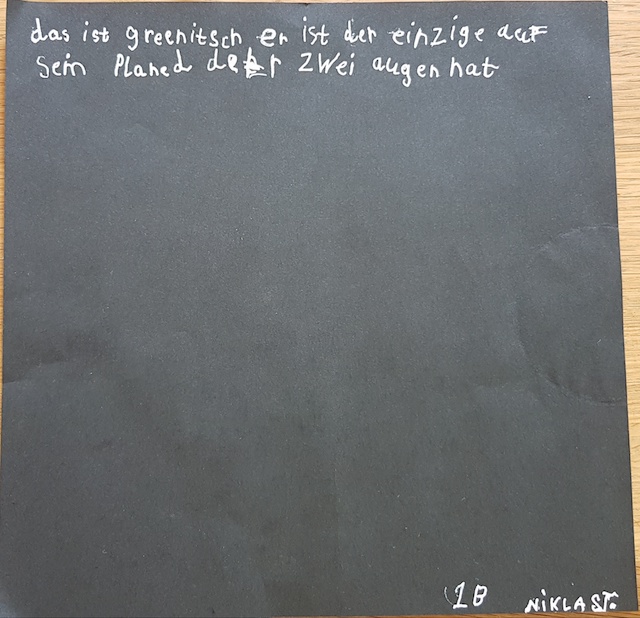 das ist greenitsch er ist der einzige auf
sein Planed der zwei augen hat
1B NIKLAS T.